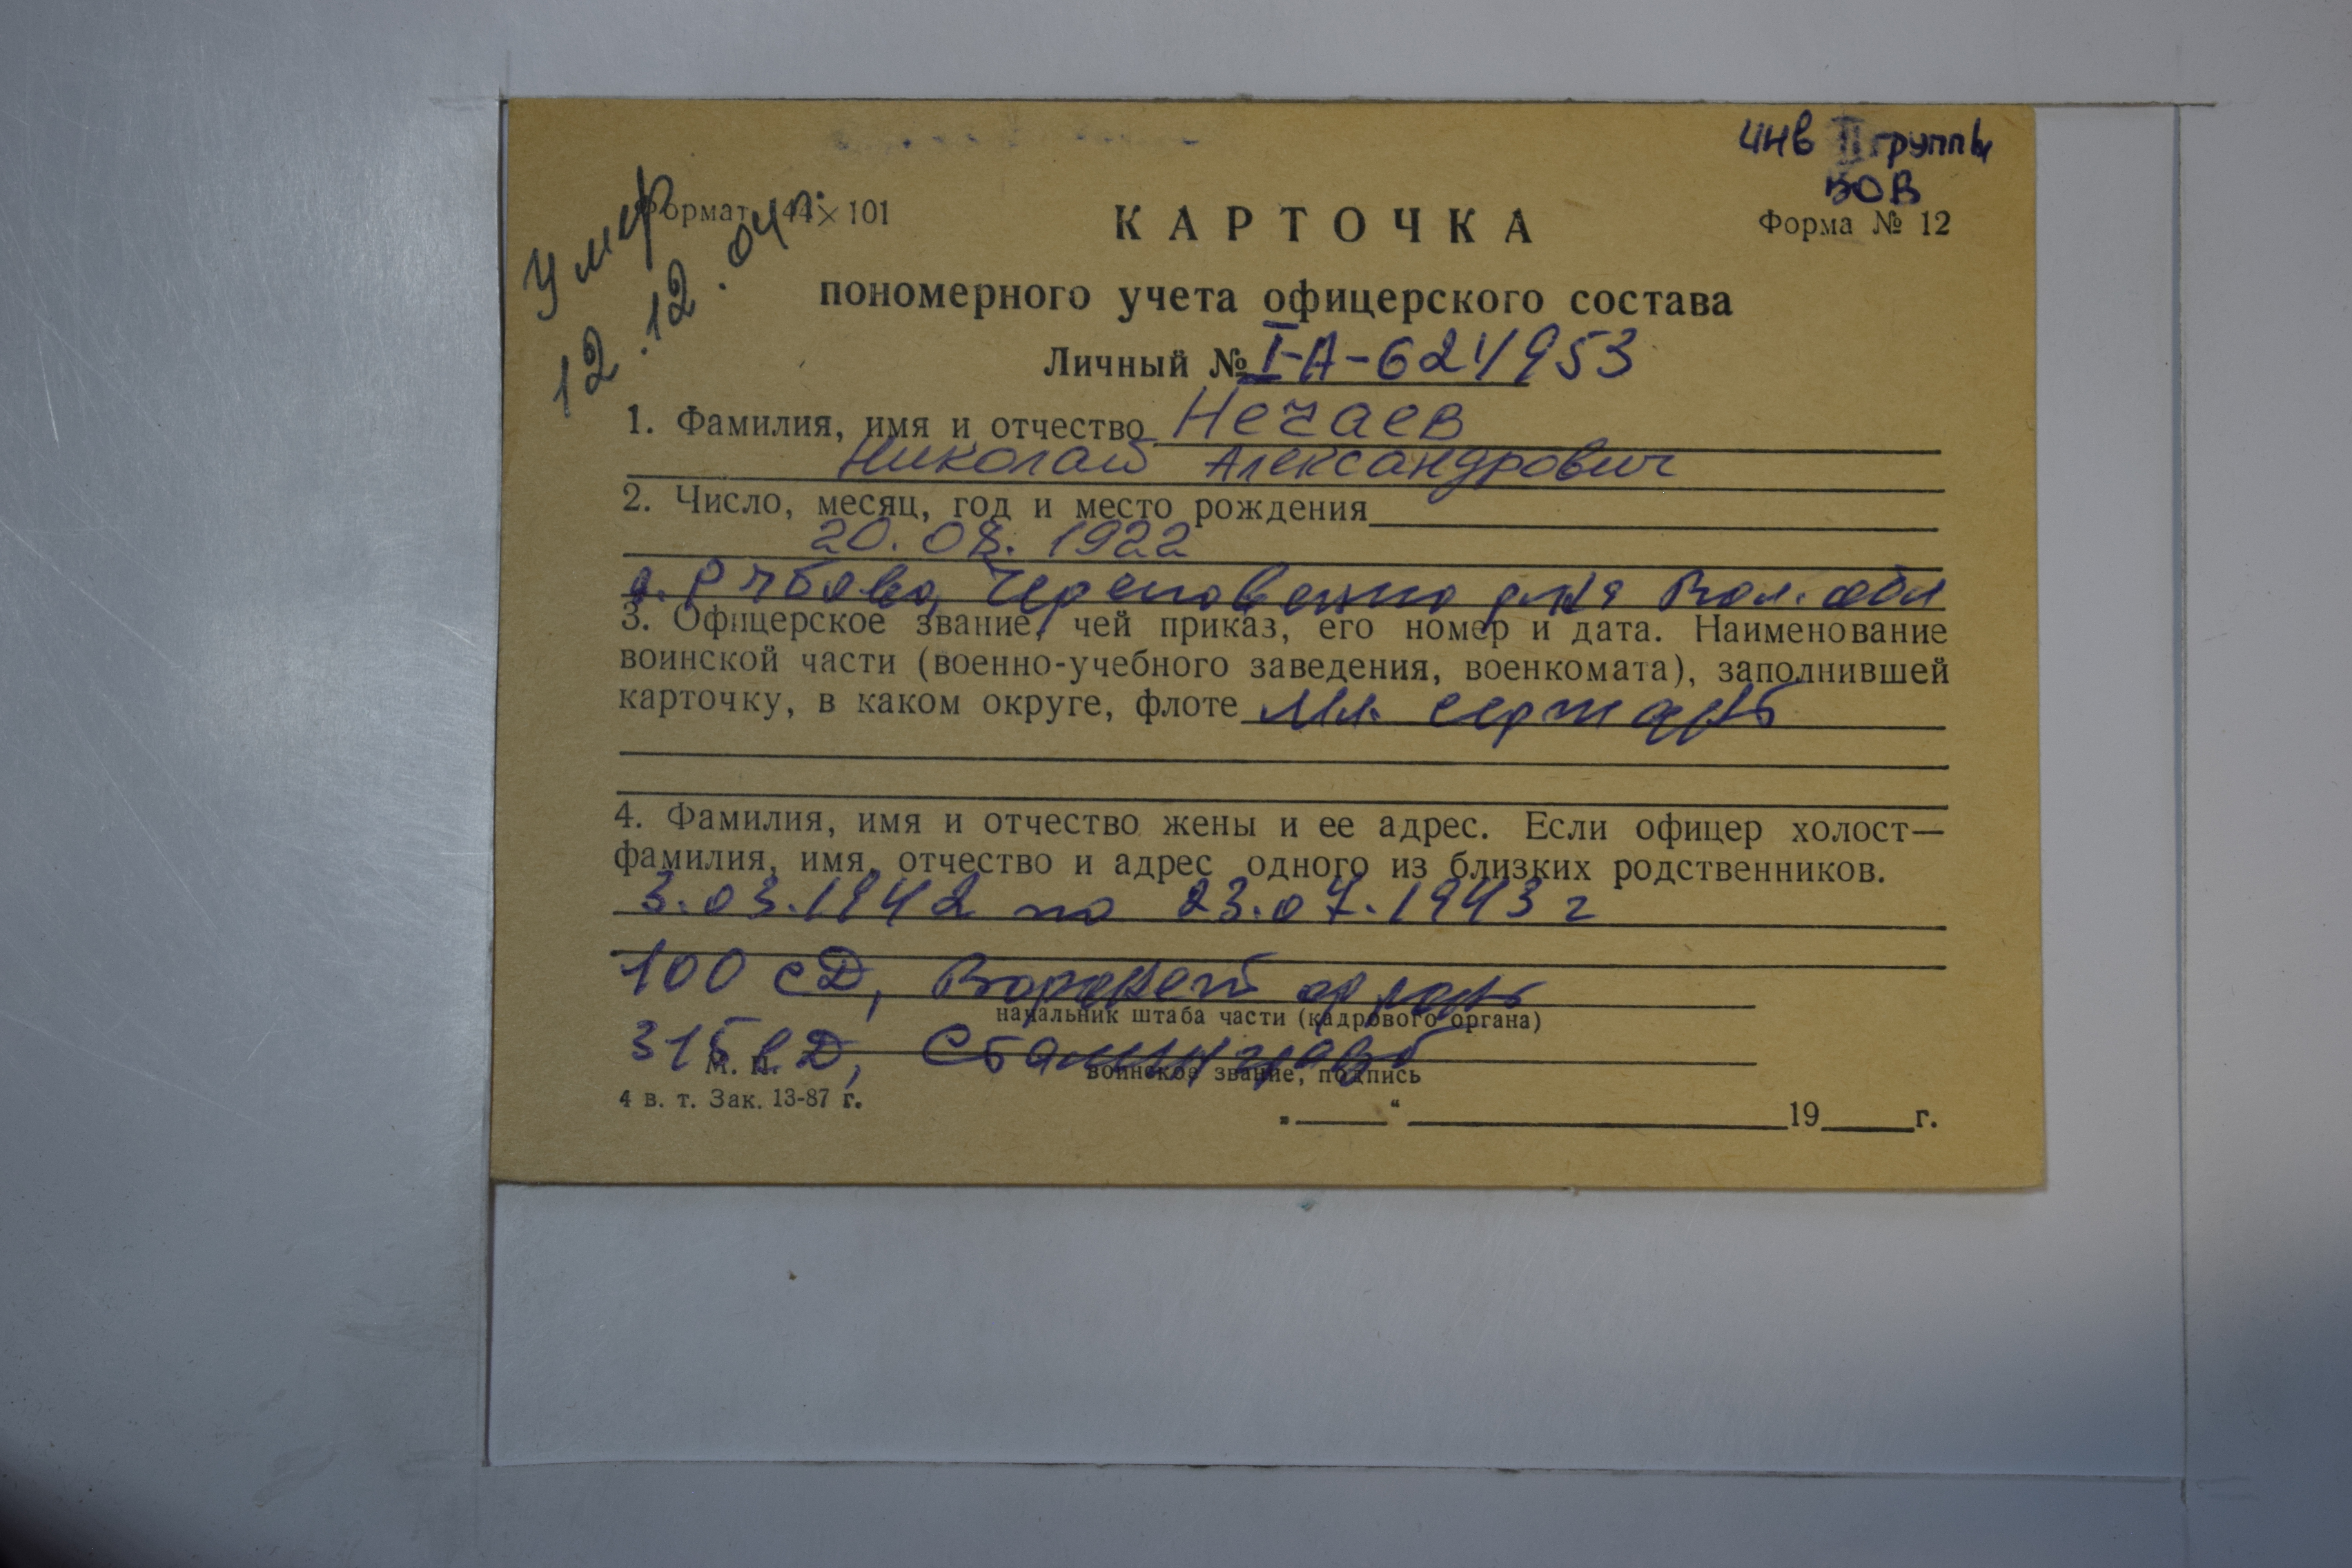 инв II группы
ВОВ
Умер
12.12.04г.
Формат 144×101
Форма № 12
КАРТОЧКА
пономерного учета офицерского состава
Личный № I-А-6241953
1. Фамилия, имя и отчество Нечаев
Николай Александрович
2. Число, месяц, год и место рождения
20.08.1922
Вол. обл
3. Офицерское звание, чей приказ, его номер и дата. Наименование
воинской части (военно-учебного заведения, военкомата), заполнившей
карточку, в каком округе, флоте Мл. сержант
4. Фамилия, имя и отчество жены и ее адрес. Если офицер холост—
фамилия, имя, отчество и адрес одного из близких родственников.
3.03.1942 по 23.07.1943 г
100 сД,
начальник штаба части (кадрового органа)
315 сД,
М. П.
воинское звание, подпись
4 в. т. Зак. 13-87 г.
„ “ 19 г.